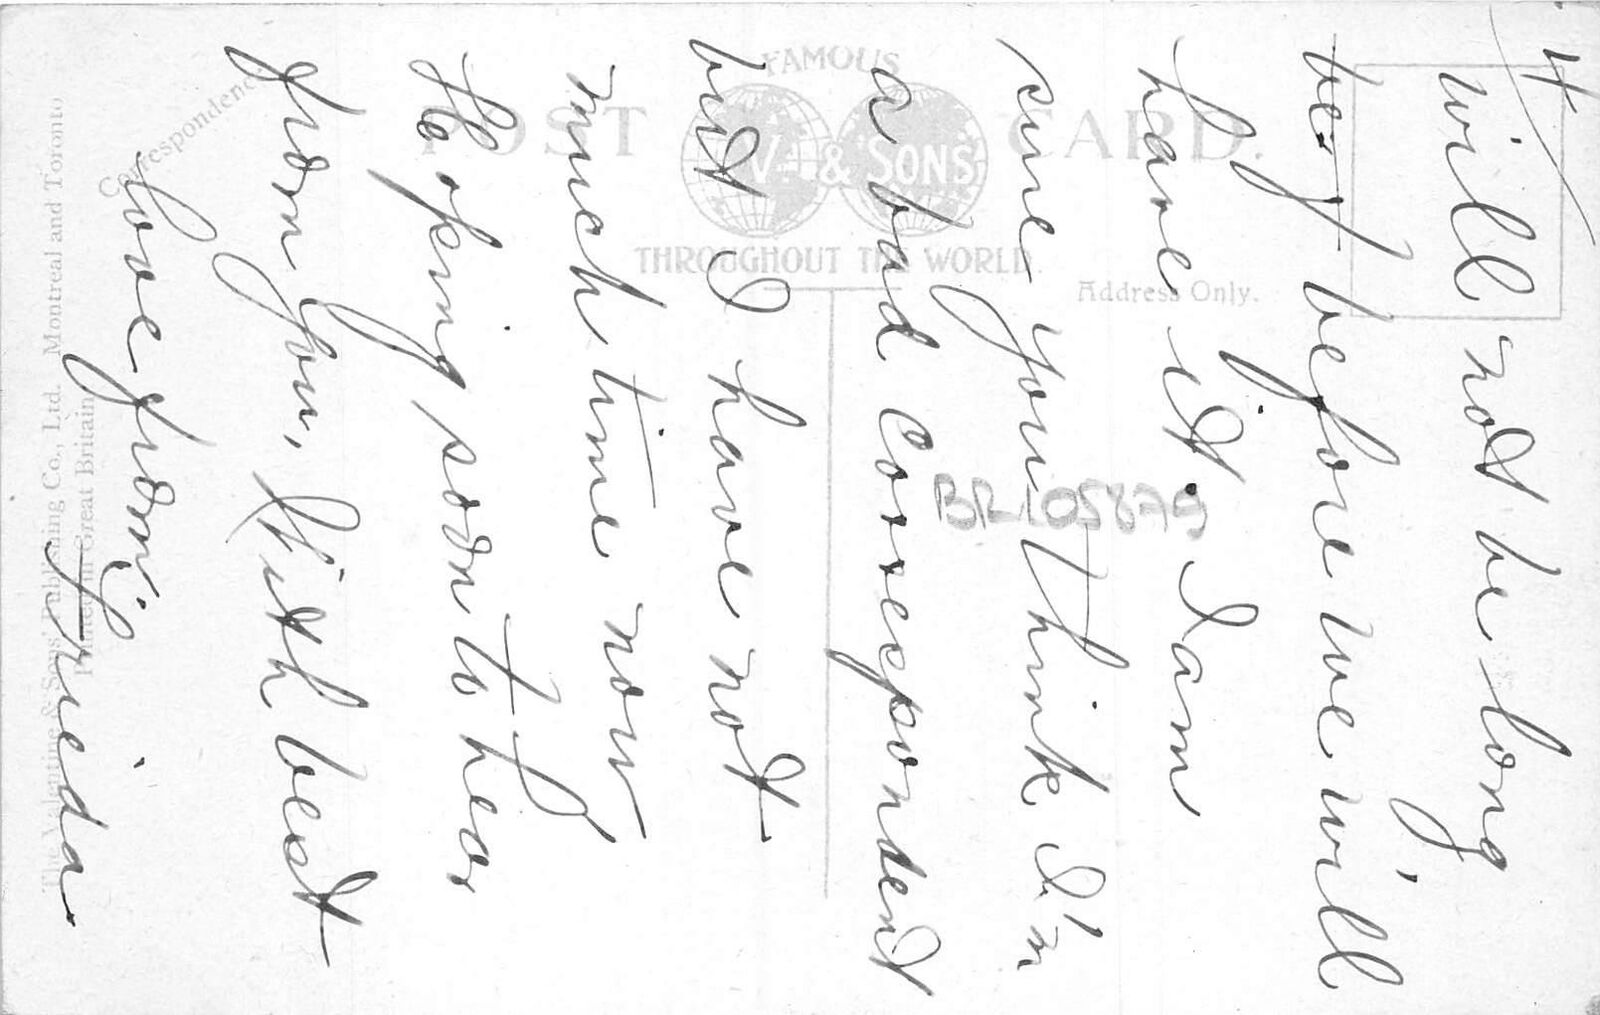 4
will not be long
bey before we will
have it. I am
sure you think I'm
a bad correspondent
but I have not
much time now
Hoping soon to hear
from you, With best
love from
Frieda
FAMOUS
POST CARD.
V. & SONS
THROUGHOUT THE WORLD.
Correspondence
Address Only.
The Valentine & Sons' Publishing Co., Ltd. Montreal and Toronto
Printed in Great Britain.
BR 105879